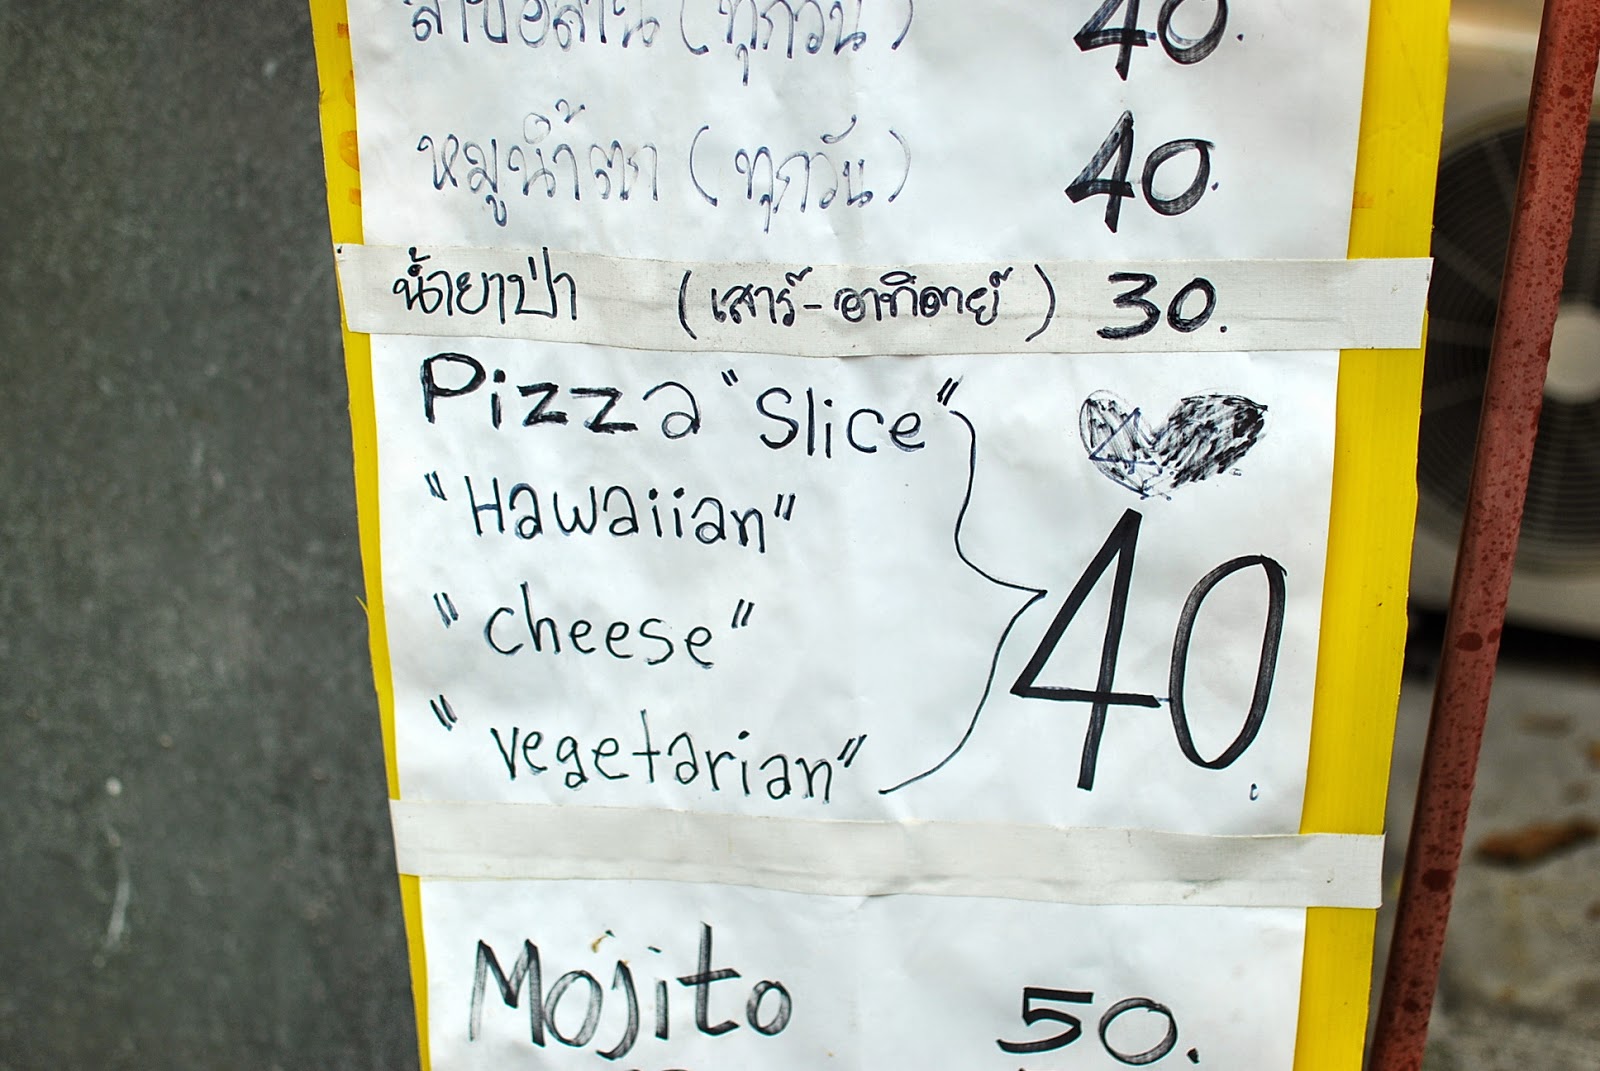 ลาบอีสาน (ทุกวัน) 40.
หมูน้ำตก (ทุกวัน) 40.
น้ำยาป่า (เสาร์-อาทิตย์) 30.
Pizza "Slice"
"Hawaiian"
"cheese"
"vegetarian"
40.
Mojito 50.